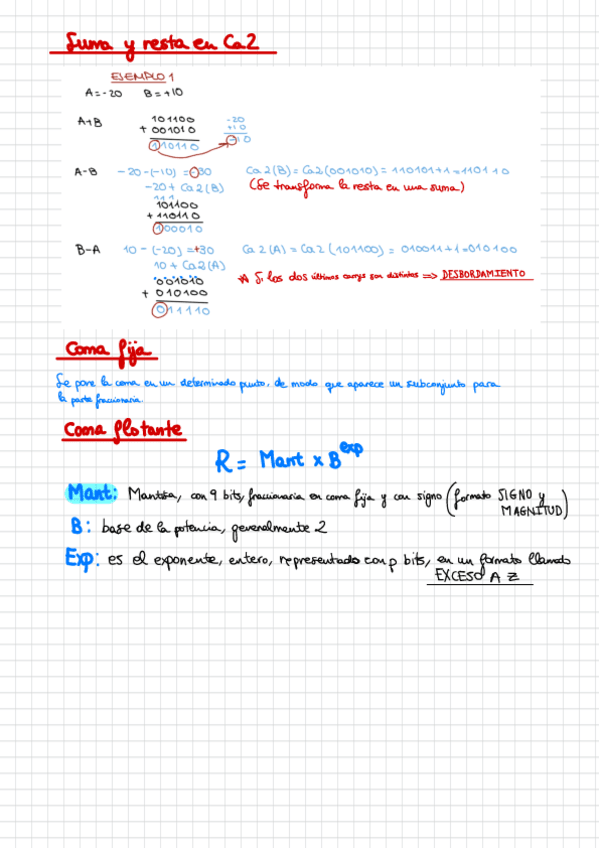 Suma y resta en Ca2
EJEMPLO 1
A=-20 B=+10
A+B 101100 -20
+ 001010 +10
110110 -10
A-B -20-(-10) = -30 Ca2(B) = Ca2(001010) = 110101+1 = 110110
-20 + Ca2(B) (Se transforma la resta en una suma)
111
101100
+ 110110
100010
B-A 10-(-20) = +30 Ca2(A) = Ca2(101100) = 010011+1 = 010100
10 + Ca2(A) * Si los dos últimos carrys son distintos => DESBORDAMIENTO
001010
+ 010100
011110
Coma fija
Se pone la coma en un determinado punto, de modo que aparece un subconjunto para
la parte fraccionaria.
Coma flotante
R = Mant x B^exp
Mant: Mantisa, con q bits, fraccionaria en coma fija y con signo (formato SIGNO y
MAGNITUD)
B: base de la potencia, generalmente 2
Exp: es el exponente, entero, representado con p bits, en un formato llamado
EXCESO A Z